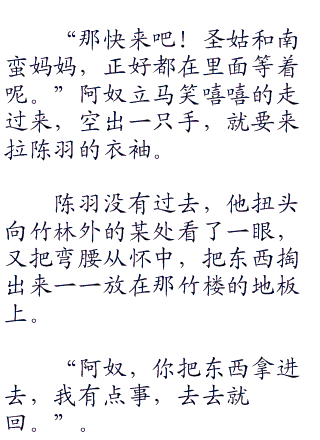 “那快来吧！圣姑和南
蛮妈妈，正好都在里面等着
呢。”阿奴立马笑嘻嘻的走
过来，空出一只手，就要来
拉陈羽的衣袖。
陈羽没有过去，他扭头
向竹林外的某处看了一眼，
又把弯腰从怀中，把东西掏
出来一一放在那竹楼的地板
上。
“阿奴，你把东西拿进
去，我有点事，去去就
回。”。